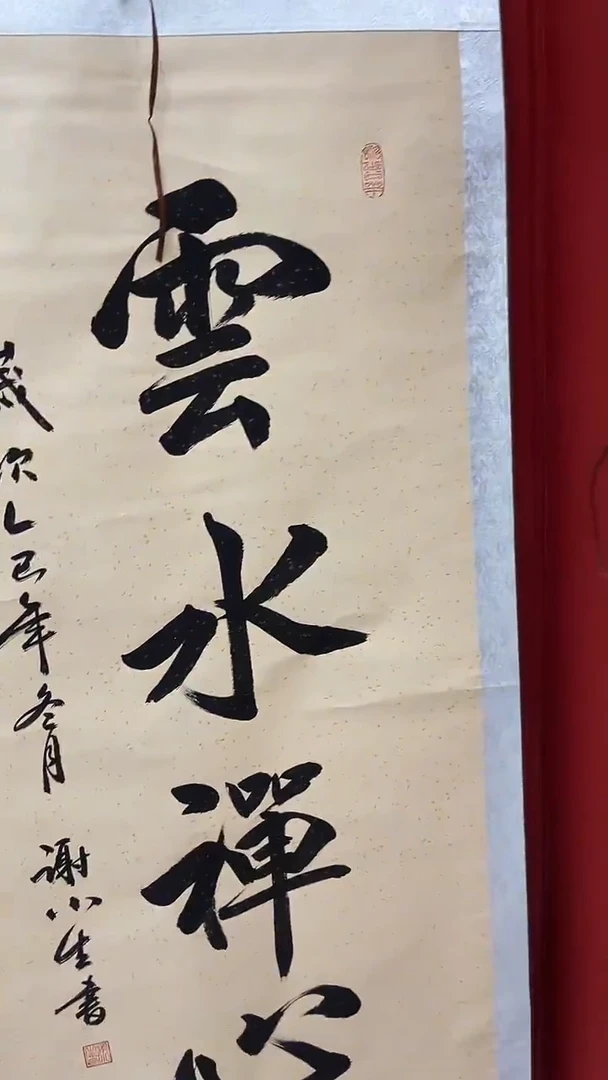 雲水禪心
歲次乙巳年冬月
謝小生書